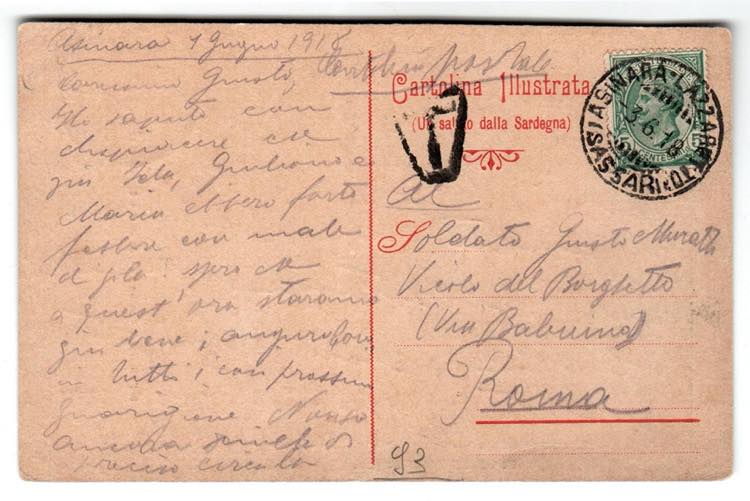 Asinara 1 Giugno 1918
Carissimo Giusto,
Ho saputo con
dispiacere che
Giuliano e
Mario ebbero forte
febbre con male
di gola: spero che
a quest'ora staranno
già bene; auguro loro
a tutti i con prossima
guarigione. Nonso
ancora
preciso
Cartolina postale
Cartolina Illustrata
(Un saluto dalla Sardegna)
T
ASINARA LAZZARETTO
(SASSARI)
3.6.18
Al
Soldato Giusto Muratti
Vicolo del Borghetto
(Via Babuino)
Roma
93